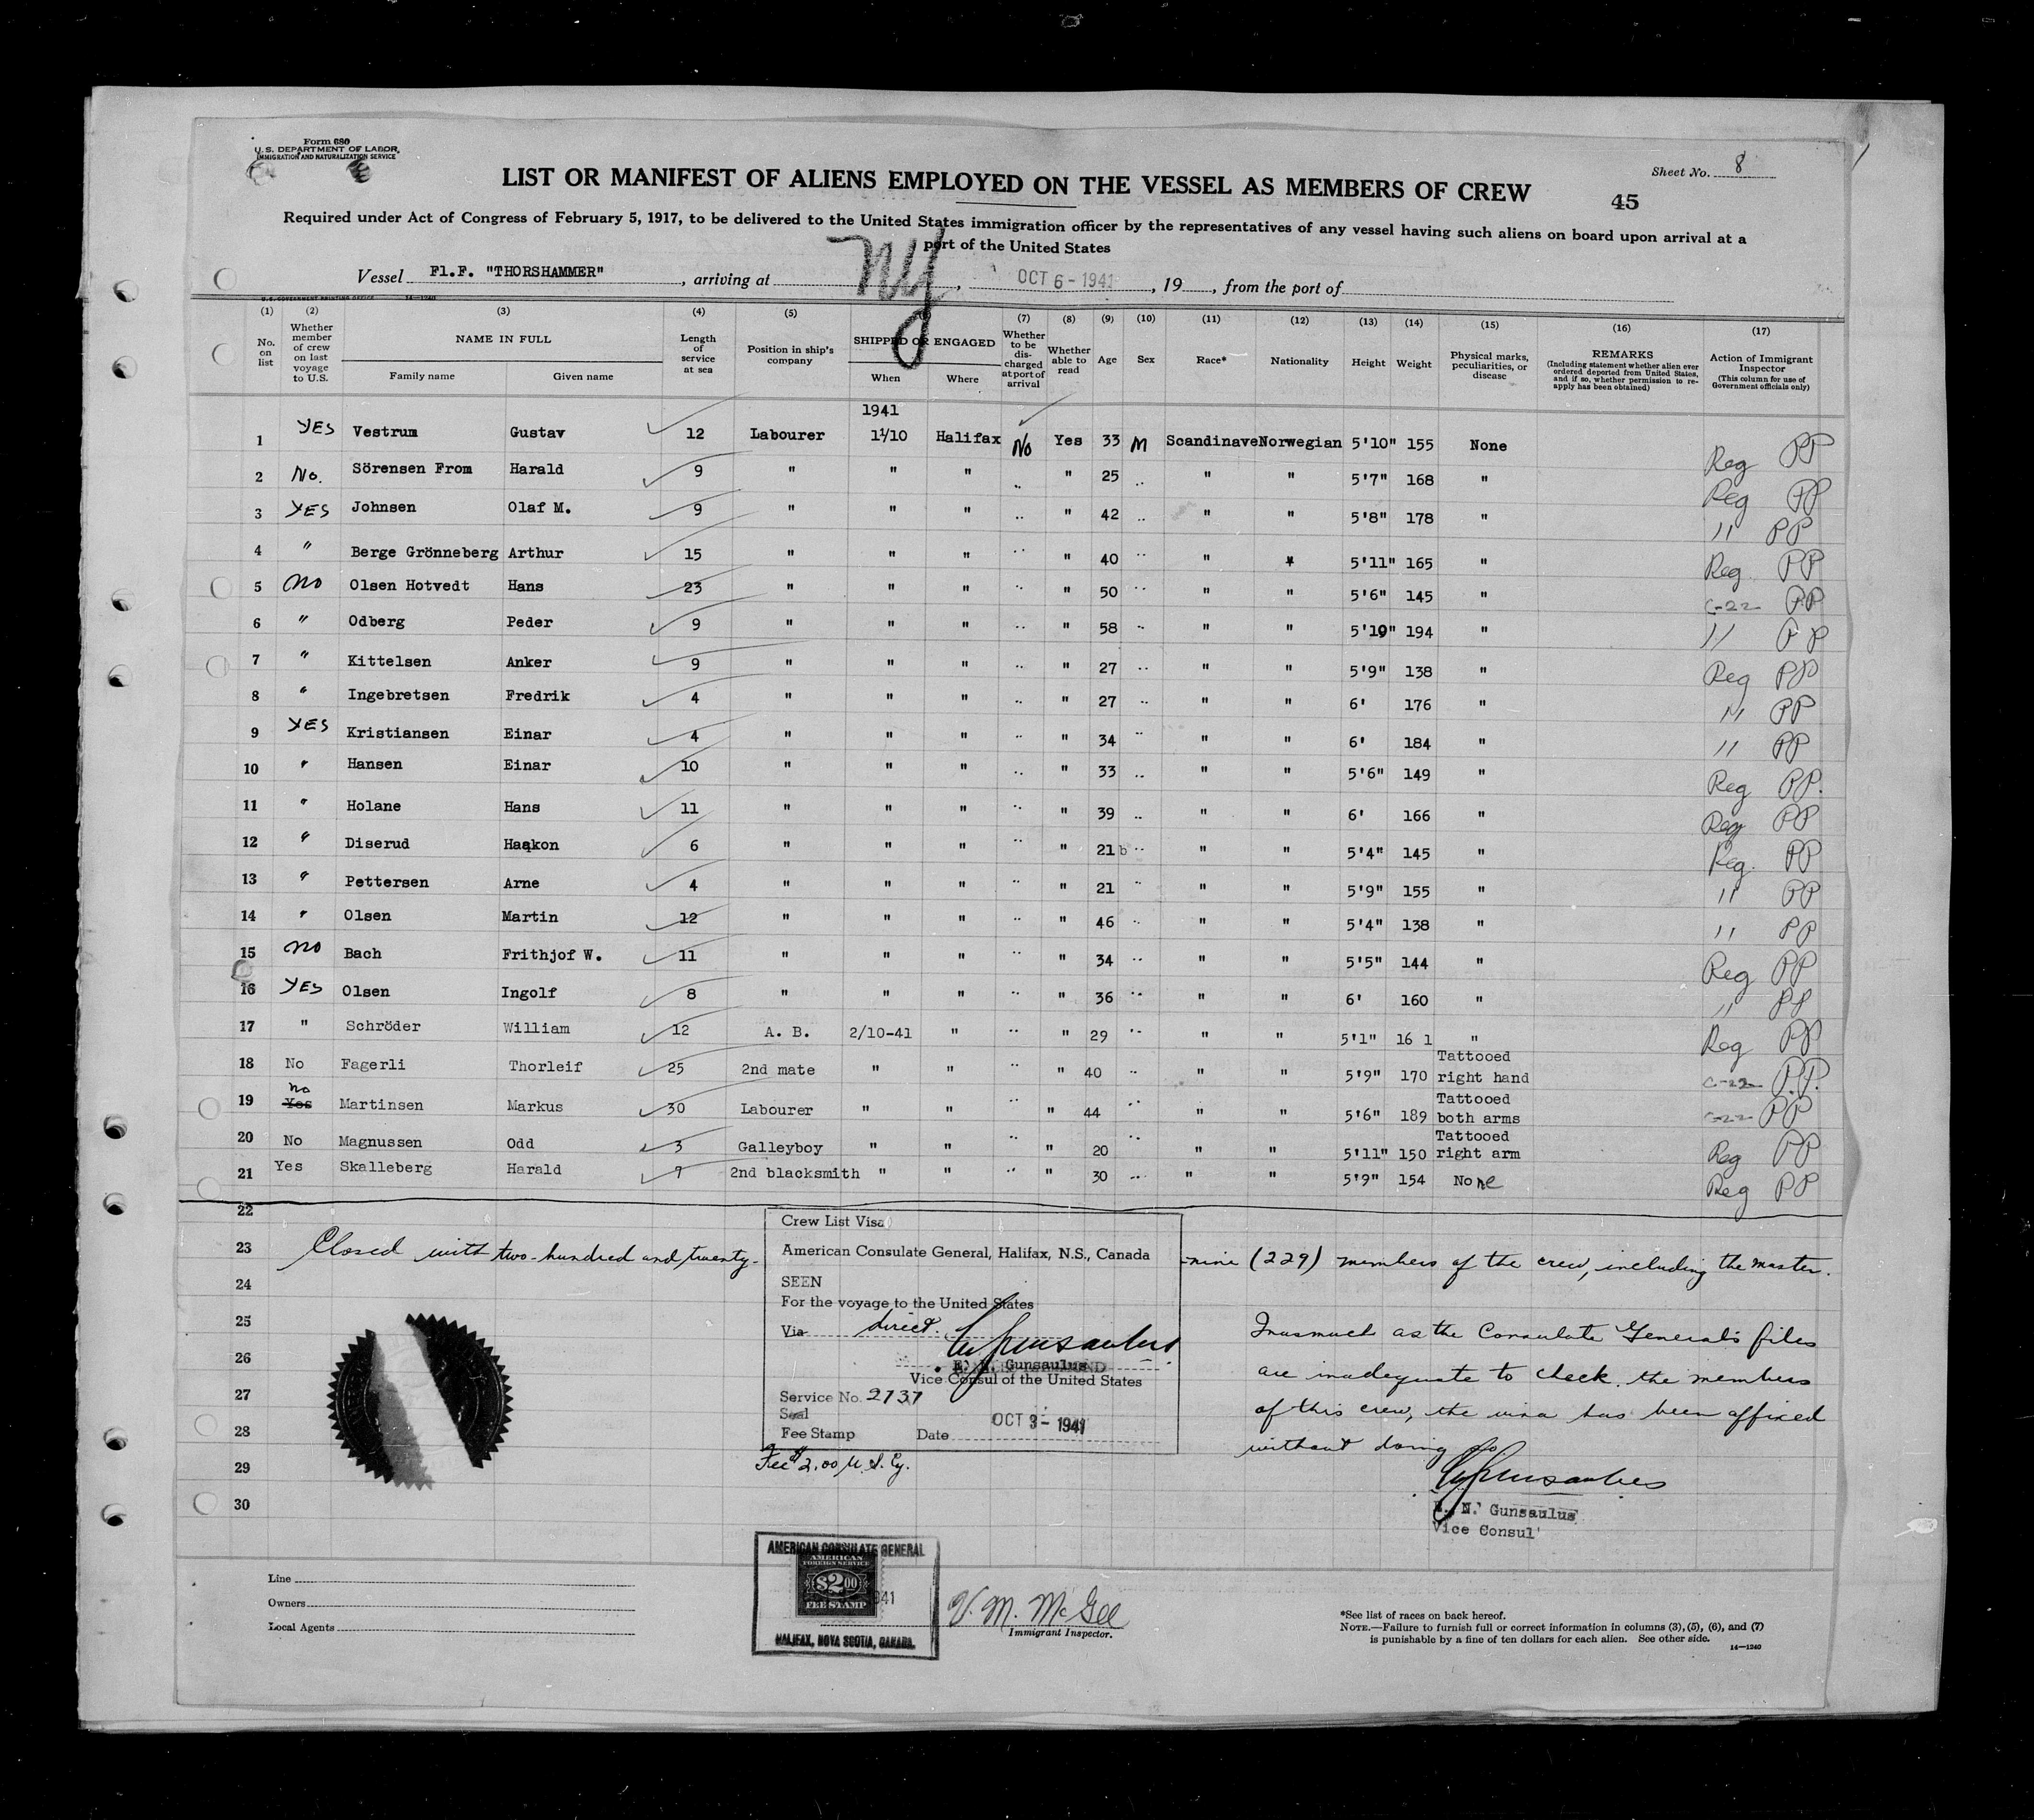 Form 680
U.S. DEPARTMENT OF LABOR
IMMIGRATION AND NATURALIZATION SERVICE
Sheet No. 8
LIST OR MANIFEST OF ALIENS EMPLOYED ON THE VESSEL AS MEMBERS OF CREW
45
Required under Act of Congress of February 5, 1917, to be delivered to the United States immigration officer by the representatives of any vessel having such aliens on board upon arrival at a
port of the United States
Vessel Fl.F. "THORSHAMMER", arriving at NY, OCT 6-1941, 19, from the port of
U.S. GOVERNMENT PRINTING OFFICE 14—1240
(1) (2) (3) (4) (5) (7) (8) (9) (10) (11) (12) (13) (14) (15) (16) (17)
No. on list
Whether member of crew on last voyage to U.S.
NAME IN FULL
Family name Given name
Length of service at sea
Position in ship's company
SHIPPED OR ENGAGED
When Where
Whether to be discharged at port of arrival
Whether able to read
Age Sex Race* Nationality Height Weight
Physical marks, peculiarities, or disease
REMARKS
(Including statement whether alien ever ordered deported from United States, and if so, whether permission to reapply has been obtained)
Action of Immigrant Inspector
(This column for use of Government officials only)
1941
1 YES Vestrum Gustav 12 Labourer 1/10 Halifax No Yes 33 M Scandinave Norwegian 5'10" 155 None Reg PP
2 No. Sörensen From Harald 9 " " " " " 25 " " " 5'7" 168 " Reg PP
3 YES Johnsen Olaf M. 9 " " " " " 42 " " " 5'8" 178 " " PP
4 " Berge Grönneberg Arthur 15 " " " " " 40 " " " 5'11" 165 " Reg PP
5 No Olsen Hotvedt Hans 23 " " " " " 50 " " " 5'6" 145 " C-22 PP
6 " Odberg Peder 9 " " " " " 58 " " " 5'10" 194 " " PP
7 " Kittelsen Anker 9 " " " " " 27 " " " 5'9" 138 " Reg PP
8 " Ingebretsen Fredrik 4 " " " " " 27 " " " 6' 176 " " PP
9 YES Kristiansen Einar 4 " " " " " 34 " " " 6' 184 " " PP
10 " Hansen Einar 10 " " " " " 33 " " " 5'6" 149 " Reg PP.
11 " Holane Hans 11 " " " " " 39 " " " 6' 166 " Reg PP
12 " Diserud Haakon 6 " " " " " 21 b " " " 5'4" 145 " Reg. PP
13 " Pettersen Arne 4 " " " " " 21 " " " 5'9" 155 " " PP
14 " Olsen Martin 12 " " " " " 46 " " " 5'4" 138 " " PP
15 No Bach Frithjof W. 11 " " " " " 34 " " " 5'5" 144 " Reg PP
16 YES Olsen Ingolf 8 " " " " " 36 " " " 6' 160 " " PP
17 " Schröder William 12 A. B. 2/10-41 " " " 29 " " " 5'1" 16 1 " Reg PP
18 No Fagerli Thorleif 25 2nd mate " " " " 40 " " " 5'9" 170 Tattooed right hand C-22 P.P.
19 no Yes Martinsen Markus 30 Labourer " " " " 44 " " " 5'6" 189 Tattooed both arms C-22 PP
20 No Magnussen Odd 3 Galleyboy " " " " 20 " " " 5'11" 150 Tattooed right arm Reg PP
21 Yes Skalleberg Harald 7 2nd blacksmith " " " " 30 " " " 5'9" 154 None Reg PP
22
23 Closed with two-hundred and twenty-nine (229) members of the crew, including the master.
24
25
26
27
28
29
30
Crew List Visa
American Consulate General, Halifax, N.S., Canada
SEEN
For the voyage to the United States
Via direct.
E. N. Gunsaulus
Vice Consul of the United States
Service No. 2737
Seal
Fee Stamp Date OCT 3-1941
Fee $2.00 U.S. Cy.
Inasmuch as the Consulate General's files
are inadequate to check the members
of this crew, the visa has been affixed
without doing so.
E. N. Gunsaulus
E. N. Gunsaulus
Vice Consul
AMERICAN CONSULATE GENERAL
AMERICAN
FOREIGN SERVICE
$2.00
FEE STAMP
HALIFAX, NOVA SCOTIA, CANADA.
Line
Owners
Local Agents
V. M. McGee
Immigrant Inspector.
*See list of races on back hereof.
NOTE.—Failure to furnish full or correct information in columns (3), (5), (6), and (7)
is punishable by a fine of ten dollars for each alien. See other side. 14—1240